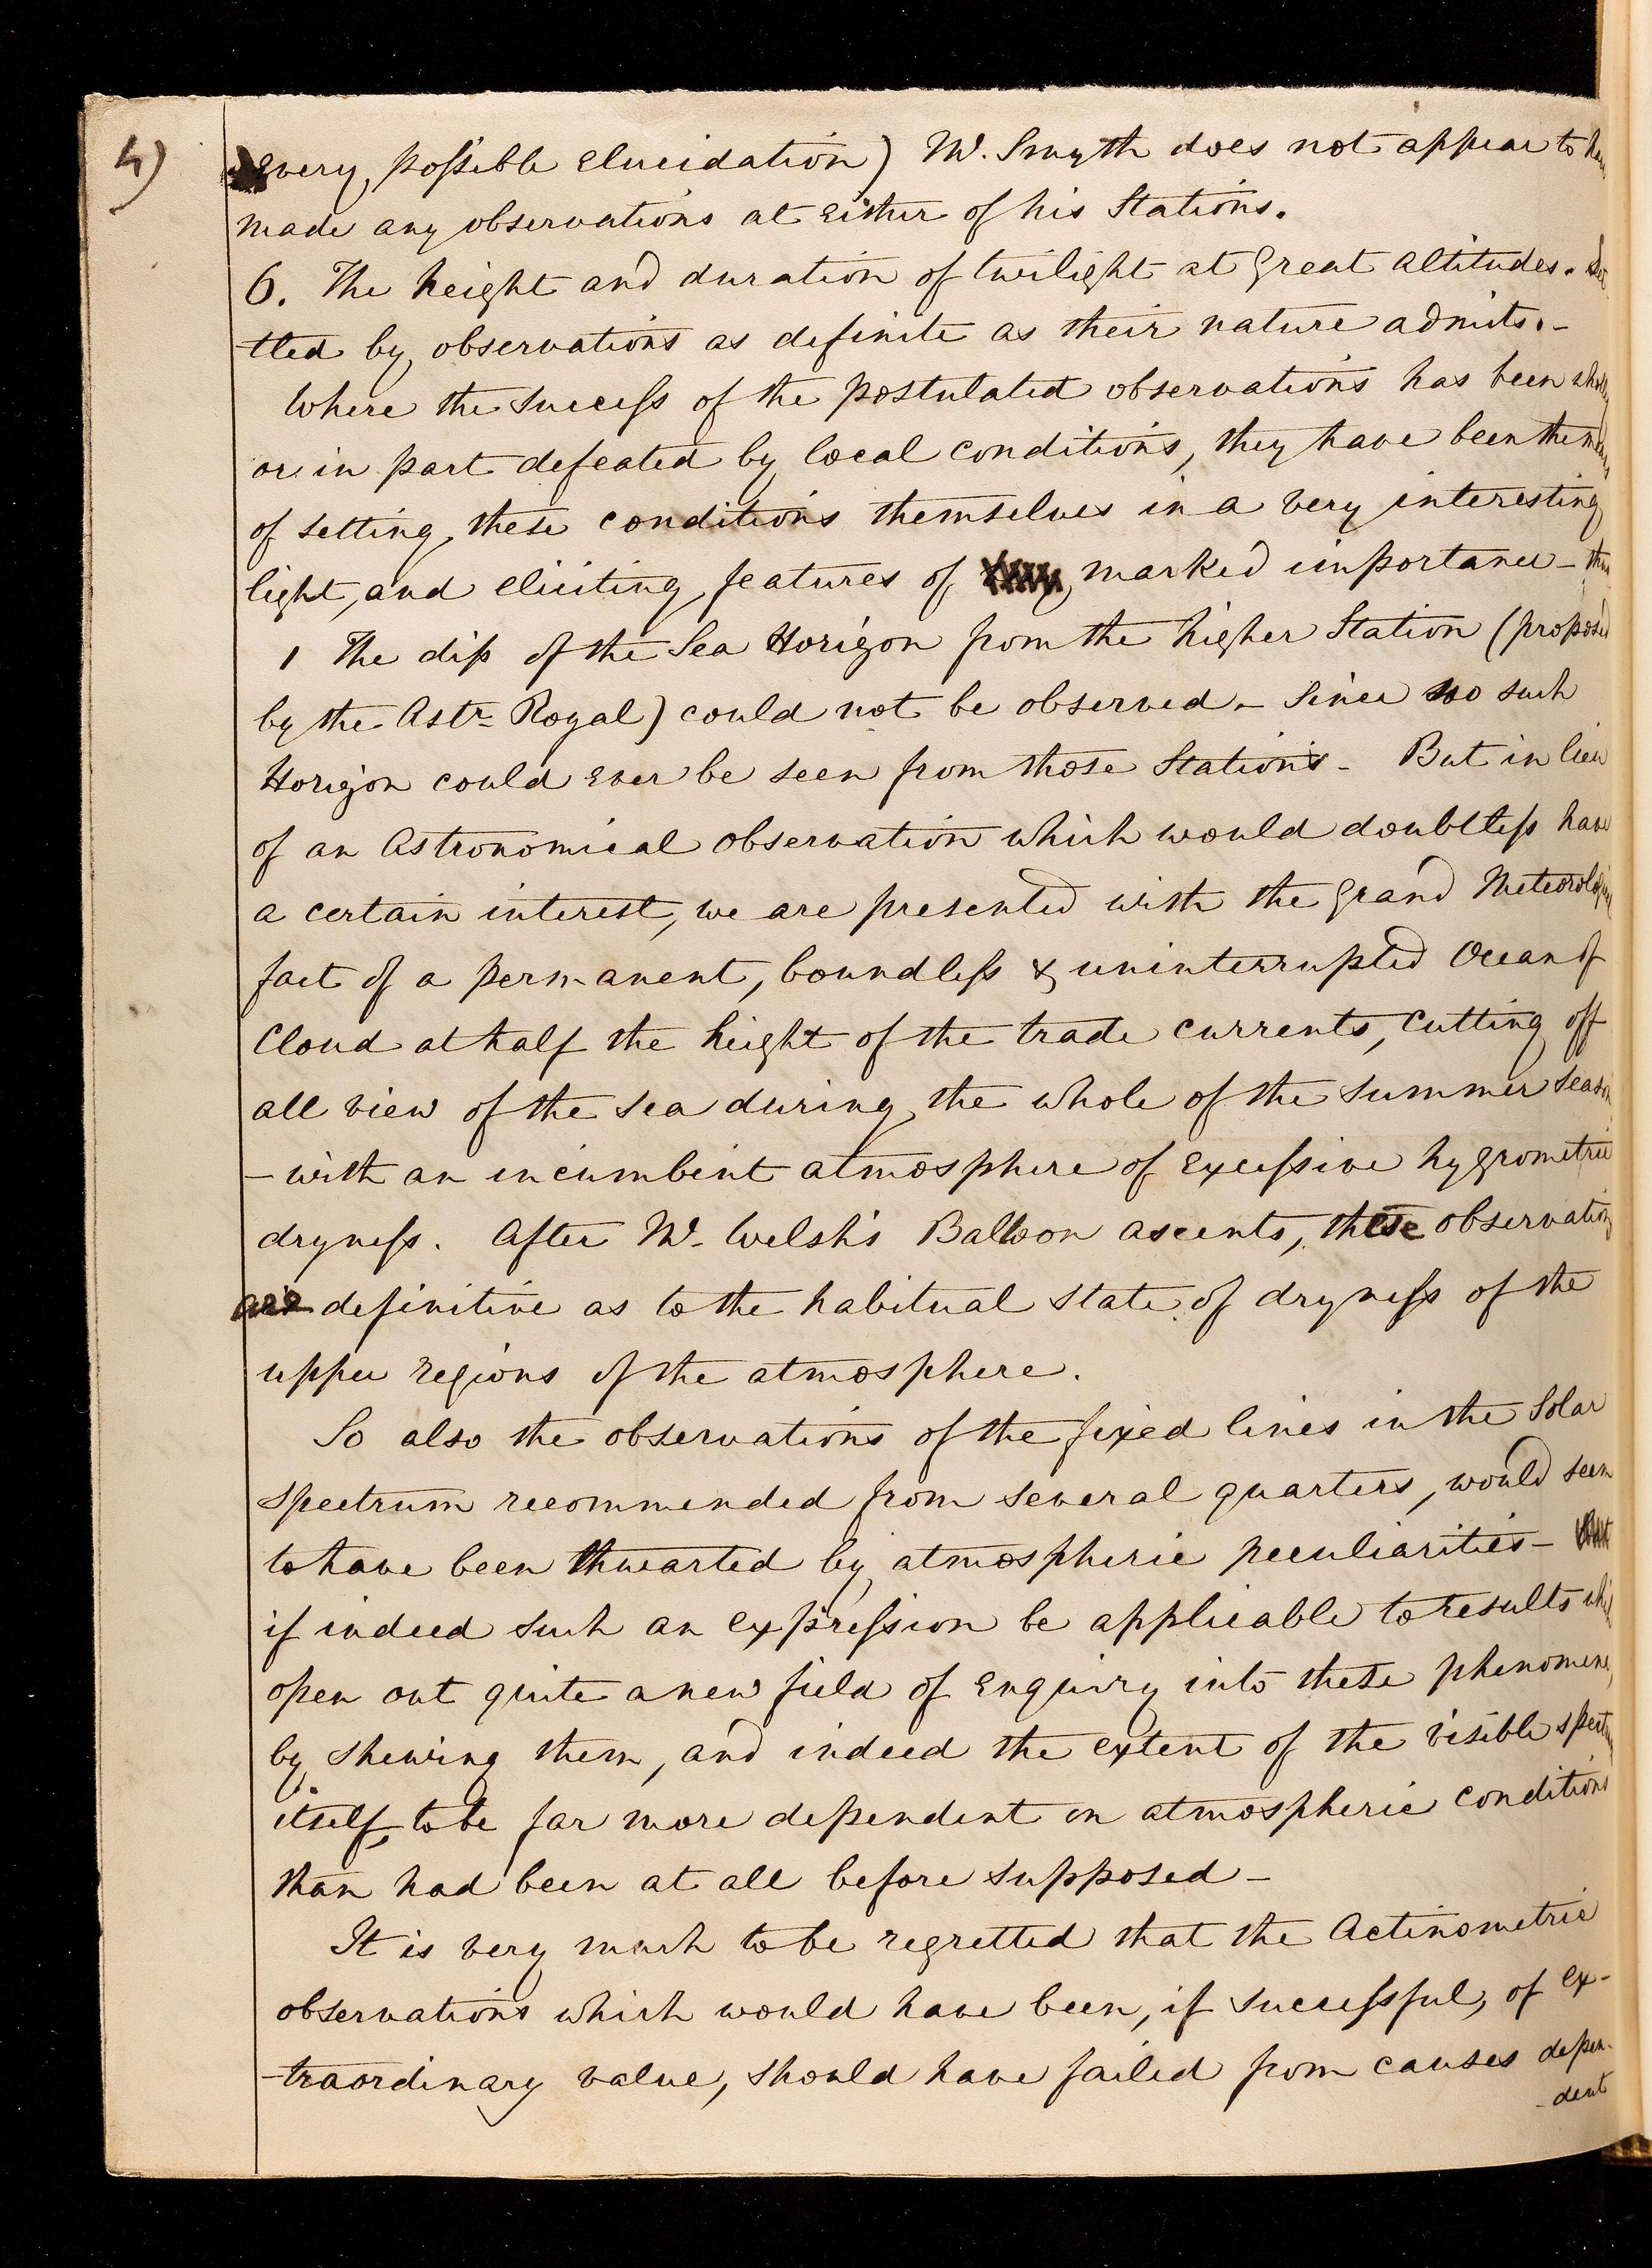 4)
every possible elucidation) Mr. Smyth does not appear to
made any observations at either of his Stations.
6. The height and duration of twilight at great altitudes.
-tled by observations as definite as their nature admits.-
Where the success of the postulated observations has been wholly
or in part defeated by local conditions, they have been the means
of setting these conditions themselves in a very interesting
light, and eliciting features of marked importance - thus
1 The dip of the Sea Horizon from the higher Station (proposed
by the Astr. Royal) could not be observed - since no such
Horizon could ever be seen from those Stations - But in lieu
of an Astronomical observation which would doubtless have
a certain interest, we are presented with the grand Meteorological
fact of a permanent, boundless & uninterrupted Ocean of
Cloud at half the height of the trade currents, cutting off
all view of the sea during the whole of the summer season
- with an incumbent atmosphere of excessive hygrometric
dryness. After Mr. Welsh's Balloon ascents, these observations
are definitive as to the habitual state of dryness of the
upper regions of the atmosphere.
So also the observations of the fixed lines in the Solar
spectrum recommended from several quarters, would seem
to have been thwarted by atmospheric peculiarities -
if indeed such an expression be applicable to results which
open out quite a new field of enquiry into these phenomena,
by shewing them, and indeed the extent of the visible spectrum
itself, to be far more dependent on atmospheric conditions
than had been at all before supposed -
It is very much to be regretted that the Actinometric
observations which would have been, if successful, of ex-
-traordinary value, should have failed from causes depen-
-dent